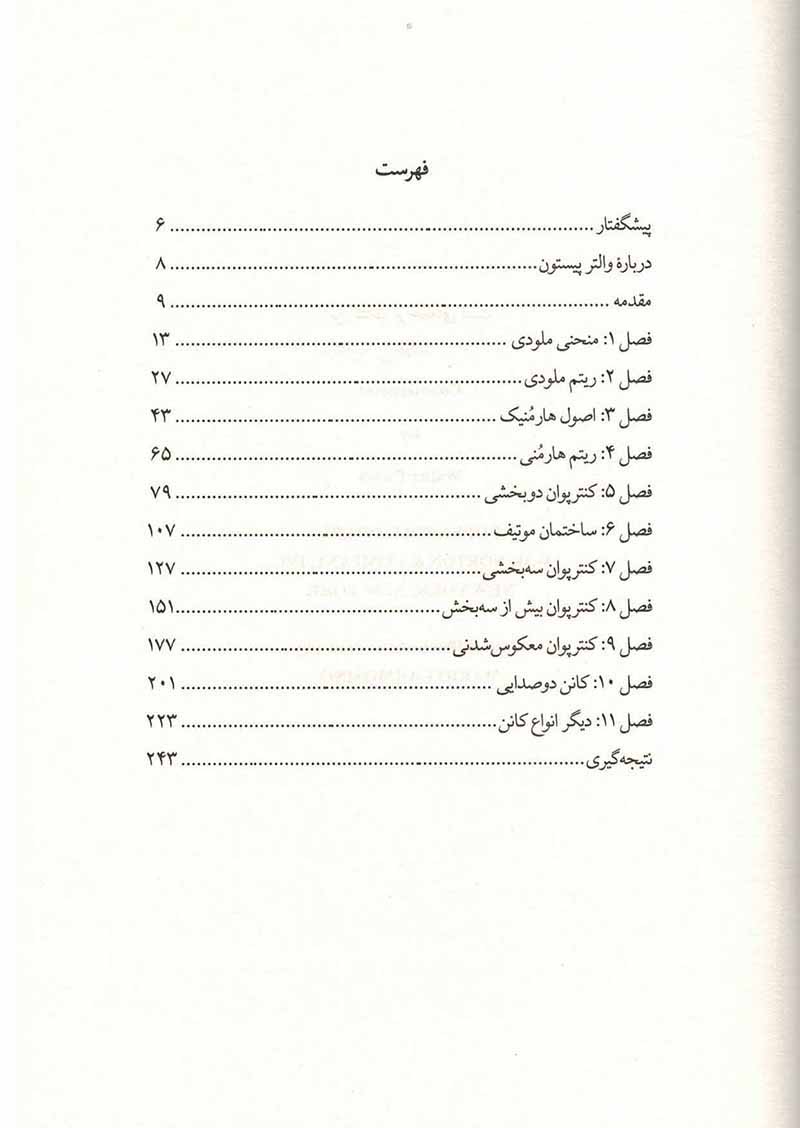 فهرست
پیشگفتار ................................................................ ۶
دربارهٔ والتر پیستون ................................................................ ۸
مقدمه ................................................................ ۹
فصل ۱: منحنی ملودی ................................................................ ۱۳
فصل ۲: ریتم ملودی ................................................................ ۲۷
فصل ۳: اصول هارمُنیک ................................................................ ۴۳
فصل ۴: ریتم هارمُنی ................................................................ ۶۵
فصل ۵: کنترپوان دوبخشی ................................................................ ۷۹
فصل ۶: ساختمان موتیف ................................................................ ۱۰۷
فصل ۷: کنترپوان سه‌بخشی ................................................................ ۱۲۷
فصل ۸: کنترپوان بیش از سه‌بخش ................................................................ ۱۵۱
فصل ۹: کنترپوان معکوس‌شدنی ................................................................ ۱۷۷
فصل ۱۰: کانن دوصدایی ................................................................ ۲۰۱
فصل ۱۱: دیگر انواع کانن ................................................................ ۲۲۳
نتیجه‌گیری ................................................................ ۲۴۳